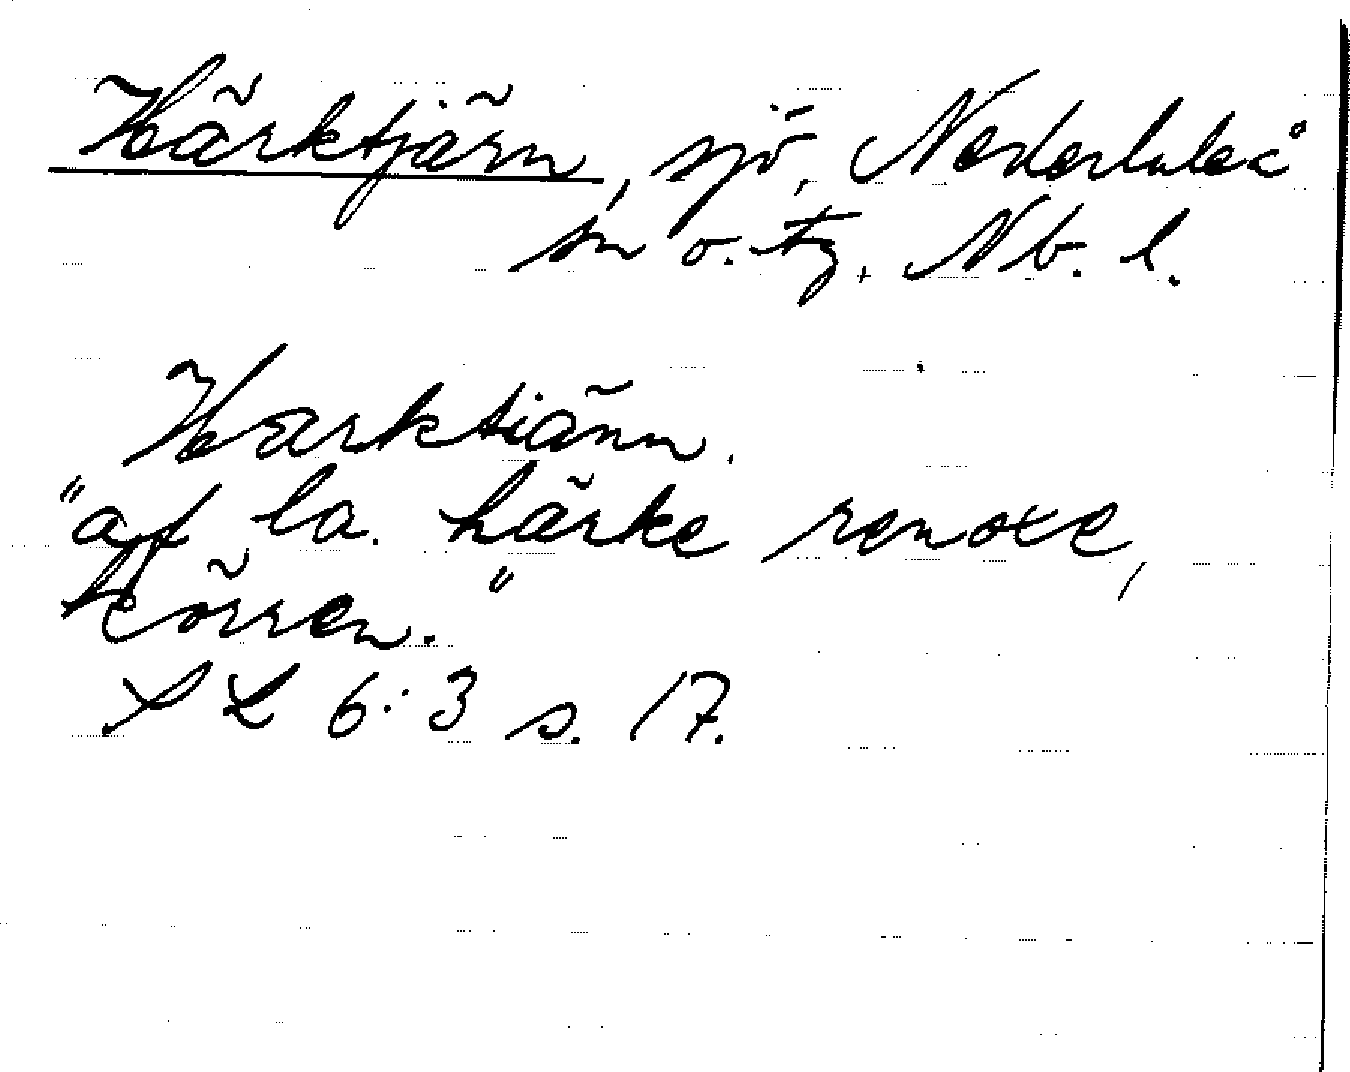 Härktjärn, sjö, Nederluleå
sn o. tg. Nb. l.
Harktiänn.
"af la. härke renoxe,
körren."
SL 6:3 s. 17.